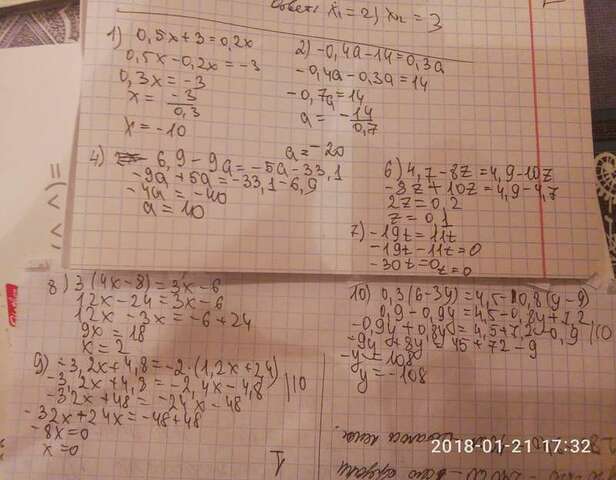 Ответ: x₁ = 2; x₂ = 3
1) 0,5x+3=0,2x
0,5x-0,2x=-3
0,3x=-3
x= -3/0,3
x=-10
2) -0,4a-14=0,3a
-0,4a-0,3a=14
-0,7a=14
a= -14/0,7
a=-20
4) 6,9-9a=-5a-33,1
-9a+5a=-33,1-6,9
-4a=-40
a=10
6) 4,7-8z=4,9-10z
-8z+10z=4,9-4,7
2z=0,2
z=0,1
7) -19t=11t
-19t-11t=0
-30t=0
t=0
8) 3(4x-8)=3x-6
12x-24=3x-6
12x-3x=-6+24
9x=18
x=2
9) -3,2x+4,8=-2·(1,2x+24)
-3,2x+4,8=-2,4x-4,8 |10
-32x+48=-24x-48
-32x+24x=-48+48
-8x=0
x=0
10) 0,3(6-3y)=4,5-0,8(y-9)
0,9-0,9y=4,5-0,8y+7,2
-0,9y+0,8y=4,5+7,2-0,9 |10
-9y+8y=45+72-9
-y=108
y=-108
2018-01-21 17:32